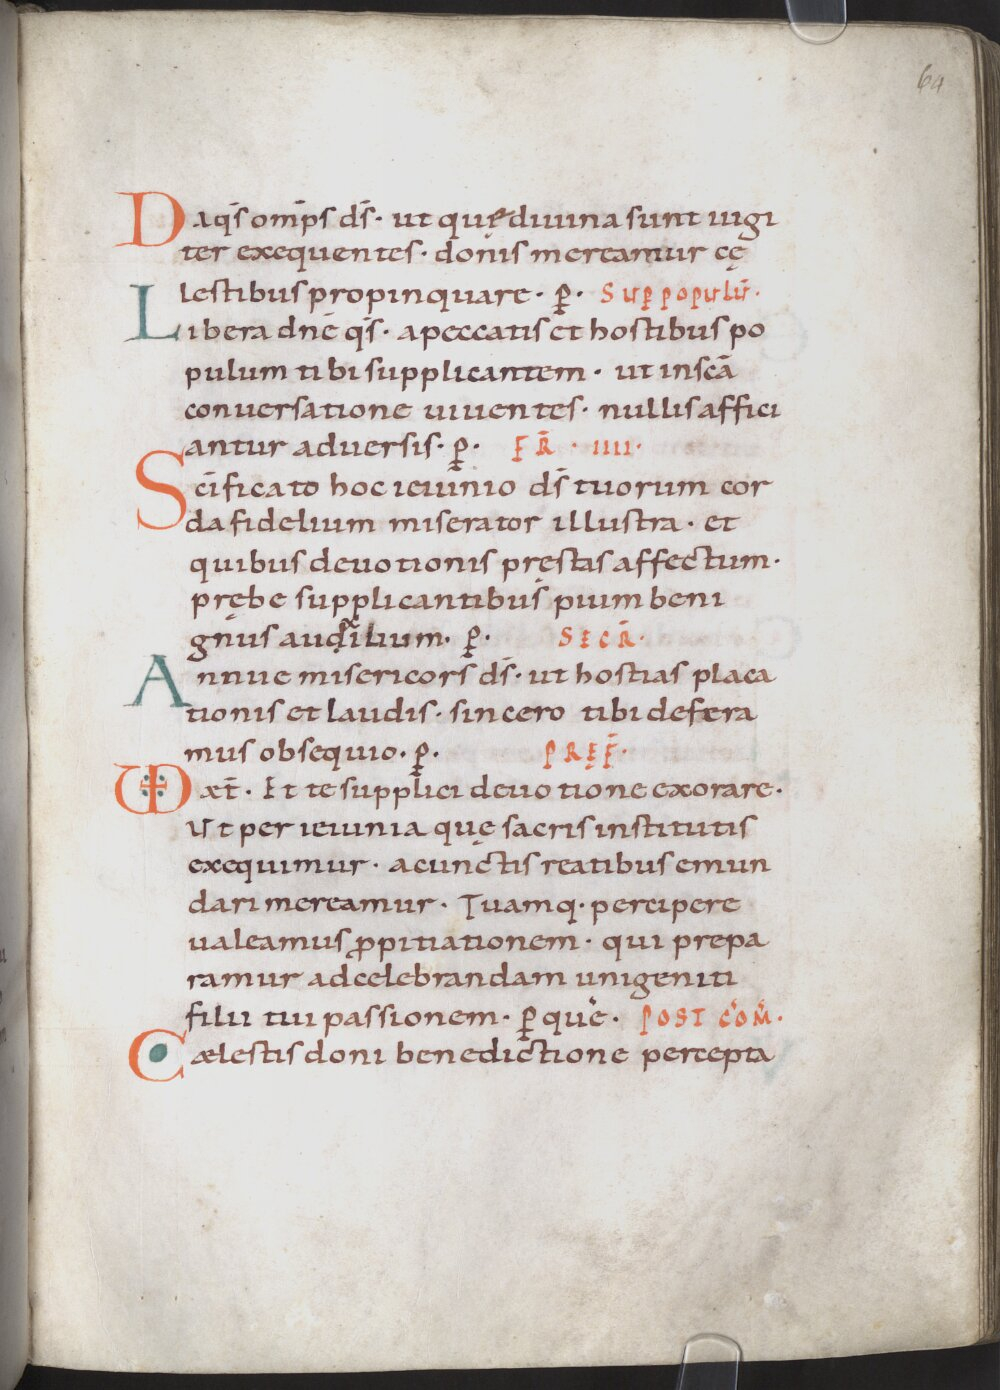 64
Da q̄s omīps d̄s · ut quę diuina sunt iugi
ter exequentes · donis mereamur cę
lestibus propinquare · p̱ · Sup̱ populū ·
Libera dnē q̄s · a peccatis et hostibus po
pulum tibi supplicantem · ut in scā
conuersatione uiuentes · nullis affici
antur aduersis · p̱ · FR̄ · IIII ·
Scīficato hoc ieiunio d̄s tuorum cor
da fidelium miserator illustra · et
quibus deuotionis pręstas affectum ·
prębe supplicantibus pium beni
gnus auditum · p̱ · SECR̄ ·
Annue misericors d̄s · ut hostias placa
tionis et laudis · sincero tibi defera
mus obsequio · p̱ · PRĘF̄ ·
VD æt̄ · Et te supplici deuotione exorare ·
Ut per ieiunia quę sacris institutis
exequimur · a cunctis reatibus emun
dari mereamur · Tuamq · percipere
ualeamus ꝓpitiationem · qui prepa
ramur ad celebrandam unigeniti
filii tui passionem · p̱ quē · POST COM̄ ·
Cælestis doni benedictione percepta